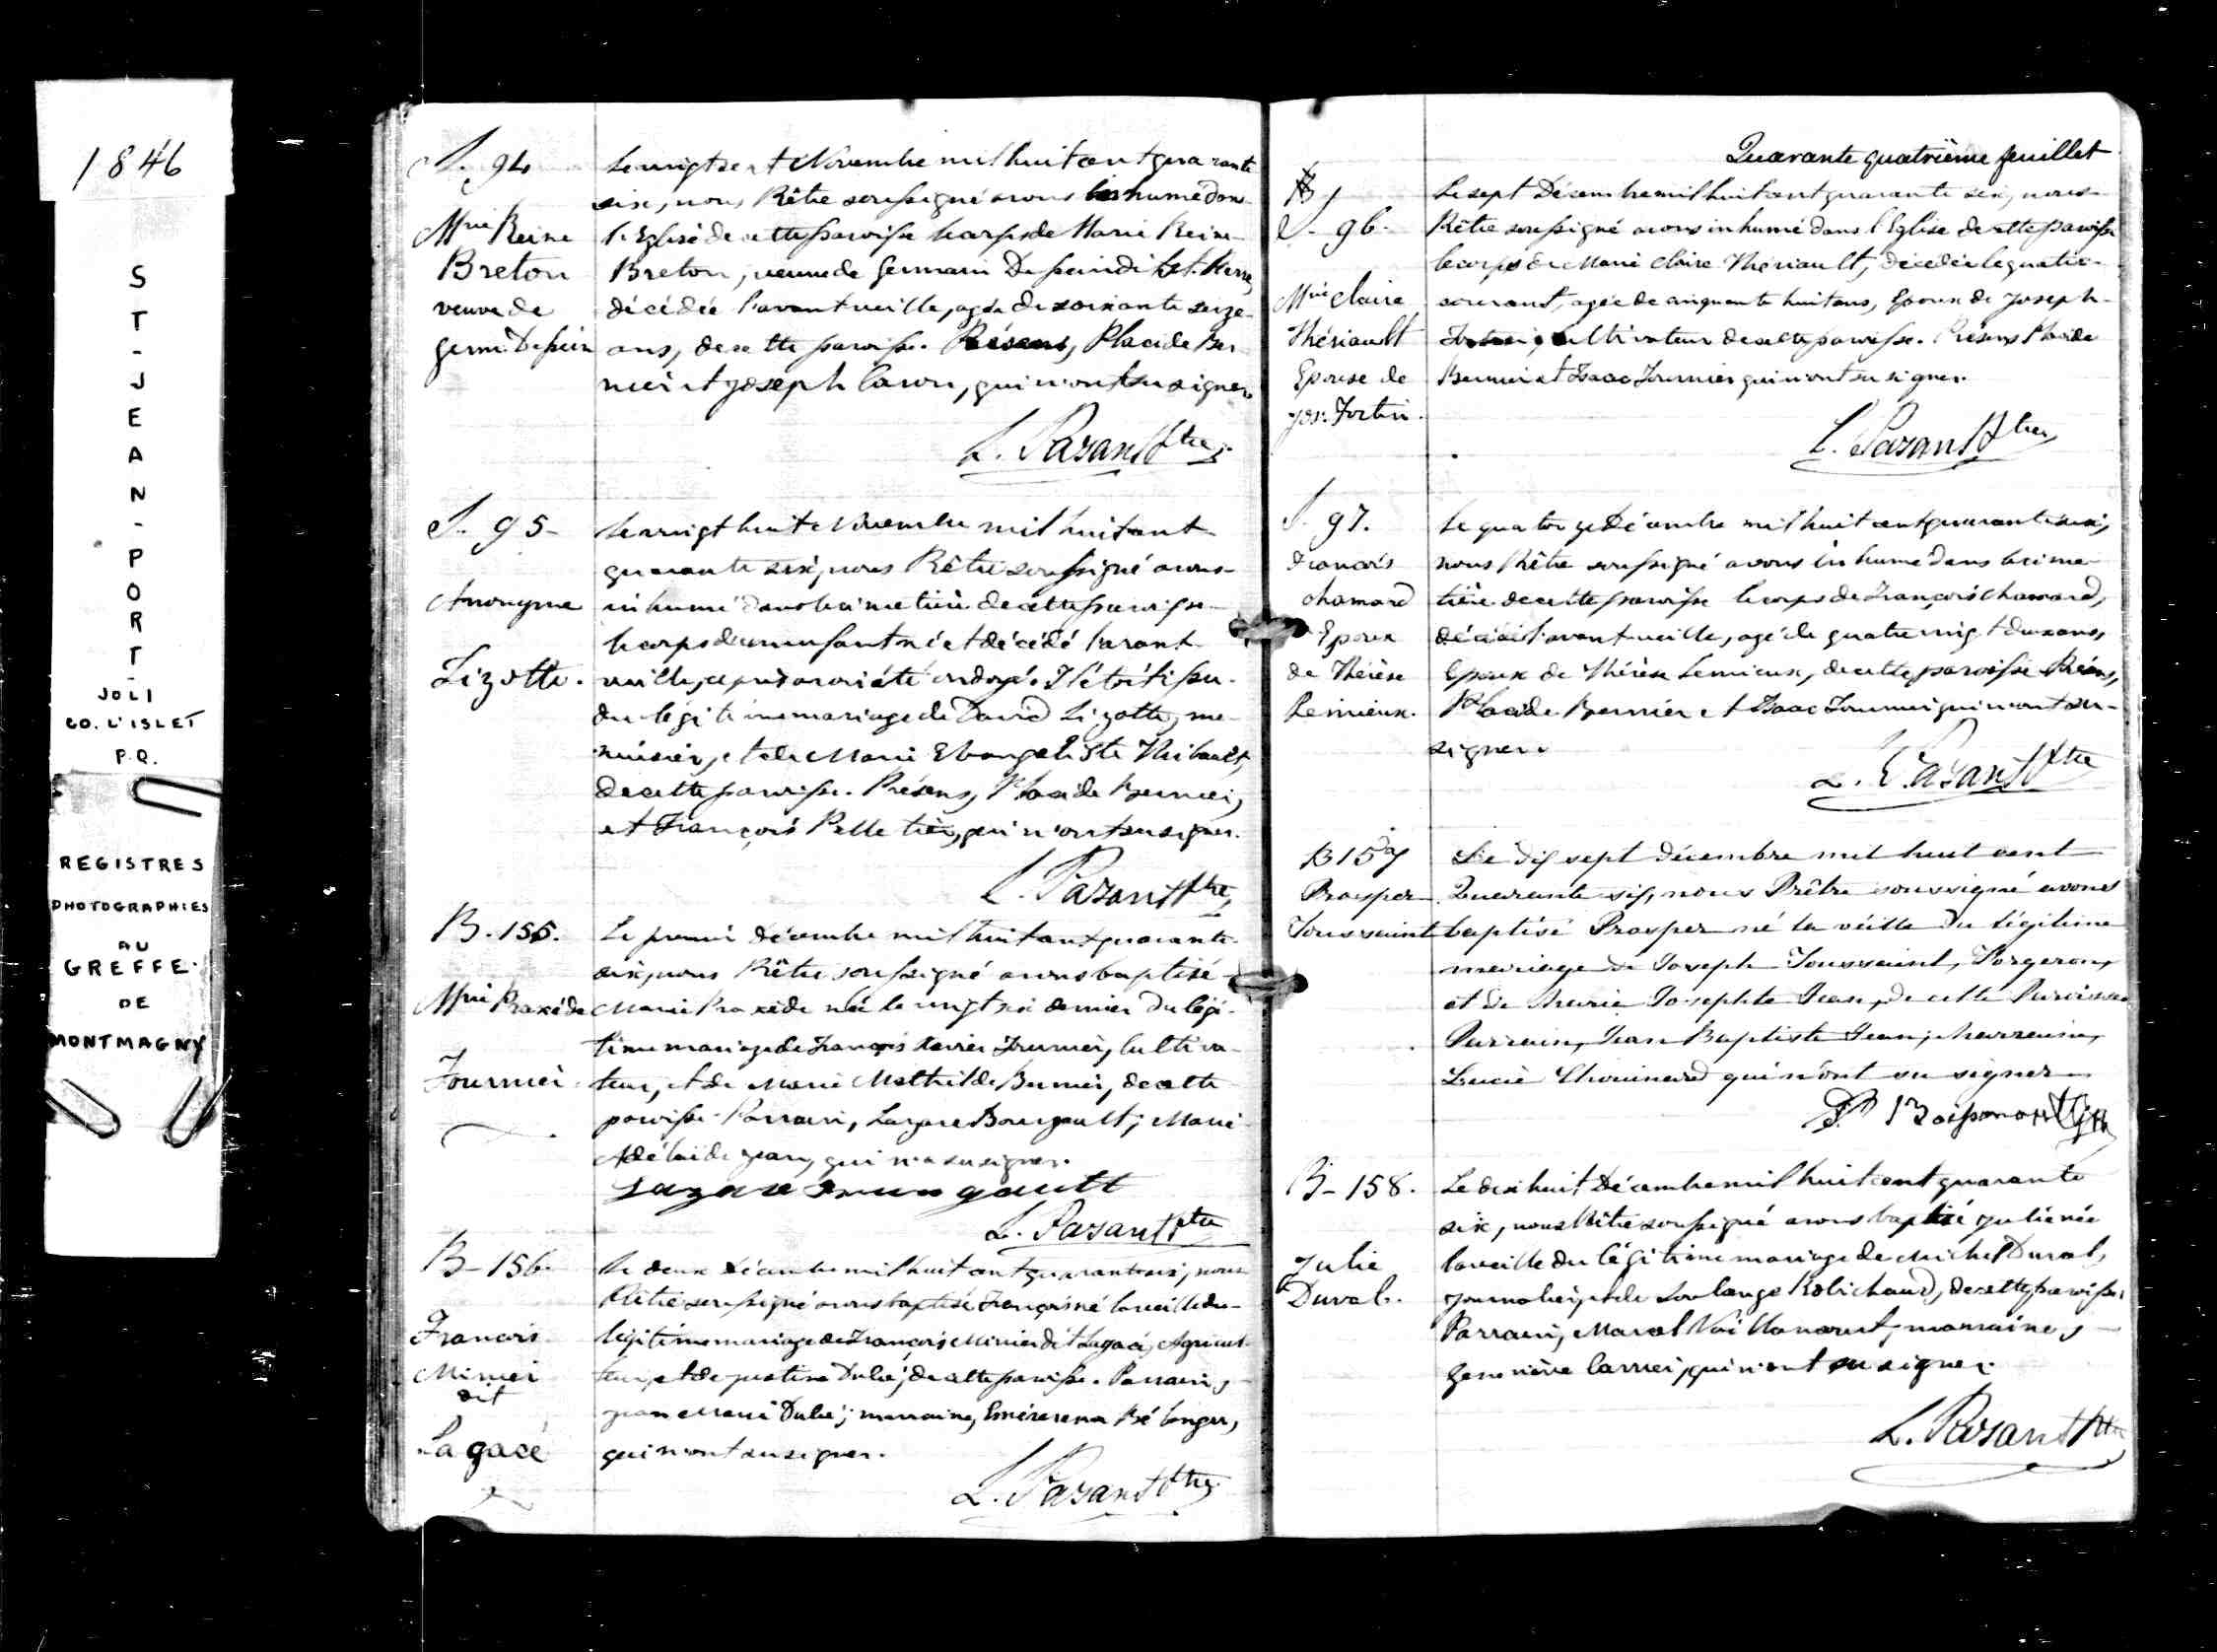 1846
ST-JEAN-PORT-
JOLI
CO. L'ISLET
P.Q.
REGISTRES
PHOTOGRAPHIES
AU
GREFFE
DE
MONTMAGNY
S. 94
Mie Reine
Breton
veuve de
Germ. Dessein
Le vingt sept Novembre mil huit cent quarante
six, nous Prêtre soussigné avons inhumé dans
l'Eglise de cette paroisse le corps de Marie Reine
Breton, veuve de Germain Dessein dit St. Pierre,
décédée l'avant veille, agée de soixante seize
ans, de cette paroisse. Présens, Placide Ber-
nier et Joseph Caron, qui n'ont su signer
L. Parant Ptre
S. 95-
Anonyme
Lizotte.
Le vingt huit Novembre mil huit cent
quarante six, nous Prêtre soussigné avons
inhumé dans le cimetière de cette paroisse
le corps d'un enfant né et décédé l'avant
veille, après avoir été ondoyé. Il était issu
du légitime mariage de David Lizotte, me-
nuisier, et de Marie Evangeliste Thibault,
de cette paroisse. Présens, Placide Bernier,
et François Pelletier, qui n'ont su signer.
L. Parant Ptre
B. 155.
Mie Praxède
Fournier
Le premier décembre mil huit cent quarante
six, nous Prêtre soussigné avons baptisé
Marie Praxède née le vingt six dernier du légi-
time mariage de François Xavier Fournier, Cultiva-
teur, et de Marie Mathilde Bernier, de cette
paroisse. Parrain, Lazare Bourgault; Marie
Adélaïde Jean, qui n'a su signer.
Lazare Bourgault
L. Parant Ptre
B-156
François
Minier
dit
Lagacé
Le deux Décembre mil huit cent quarante six, nous
Prêtre soussigné avons baptisé François né la veille du
légitime mariage de François Minier dit Lagacé, Agricul-
teur, et de Justine Dubé, de cette paroisse. Parrain,
Jean Marie Dubé; marraine, Emérence Bélanger,
qui n'ont su signer.
L. Parant Ptre
Quarante quatrième feuillet
S. 96.
Mie Claire
Thériault
Epouse de
Jos. Fortin.
Le sept Décembre mil huit cent quarante six, nous
Prêtre soussigné avons inhumé dans l'Eglise de cette paroisse
le corps de Marie Claire Thériault, décédée le quatre
courant, agée de cinquante huit ans, Epouse de Joseph
Fortin, cultivateur de cette paroisse. Présens Placide
Bernier et Isaac Fournier qui n'ont su signer.
L. Parant Ptre
S. 97.
François
Chamard
Epoux
de Thérèse
Lemieux.
Le quatorze Décembre mil huit cent quarante six,
nous Prêtre soussigné avons inhumé dans le cime-
tière de cette paroisse le corps de François Chamard,
décédé l'avant veille, agé de quatre vingt deux ans,
Epoux de Thérèse Lemieux, de cette paroisse. Présens,
Placide Bernier et Isaac Fournier qui n'ont su
signer.
L. Parant Ptre
B 157
Prosper
Toussaint
Le dix sept décembre mil huit cent
Quarante six, nous Prêtre soussigné avons
baptisé Prosper né la veille du légitime
mariage de Joseph Toussaint, Forgeron,
et de Marie Josephte Jean, de cette Paroisse
Parrain, Jean Baptiste Jean, Marraine,
Lucie Chouinard qui n'ont su signer
B-158.
Julie
Duval.
Le dix huit Décembre mil huit cent quarante
six, nous Prêtre soussigné avons baptisé Julie née
la veille du légitime mariage de Michel Duval,
journalier, et de Soulange Robichaud, de cette paroisse.
Parrain, Marcel Vaillancourt, marraine,
Geneviève Carrier, qui n'ont su signer.
L. Parant Ptre